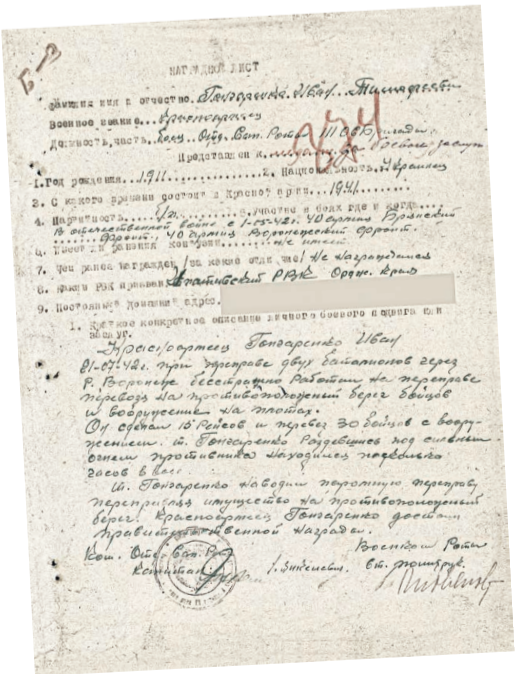 Б-3
НАГРАДНОЙ ЛИСТ
Фамилия имя и отчество. Гончаренко Иван Тимофеевич
Военное звание... Красноармеец
Должность, часть. Боец Отд. Вет. Рота III ОСБригады
Представлен к... медали "За боевые заслуги"
1. Год рождения....1911......... 2. Национальность. Украинец
3. С какого времени состоит в Красной армии....1941.........
4. Партийность......... Участие в боях где и когда....
В отечественной войне с 1-05-42г. 40 армия Брянский
фронт, 40 армия Воронежский фронт.
6. Имеет ли ранения контузии..... Не имеет
7. Чем ранее награжден /за какие отличия/ Не награждался
8. Каким РВК призван. Апатитский РВК Ордж. Края
9. Постоянный домашний адрес.
1. Краткое конкретное описание личного боевого подвига или
заслуг.
Красноармеец Гончаренко Иван
-07-42г. при переправе двух батальонов через
р. Воронеж бесстрашно работал на переправе
перевозя на противоположный берег бойцов
и вооружение на плотах.
Он сделал 15 рейсов и перевез 30 бойцов с воору-
жением. т. Гончаренко раздевшись под сильным
огнем противника находился по несколько
часов в воде.
т. Гончаренко наводил паромную переправу
переправляя имущество на противоположный
берег. Красноармеец Гончаренко достоин
правительственной награды.
Ком. Отд. Рота
Военком Роты
Капитан
ст. политрук